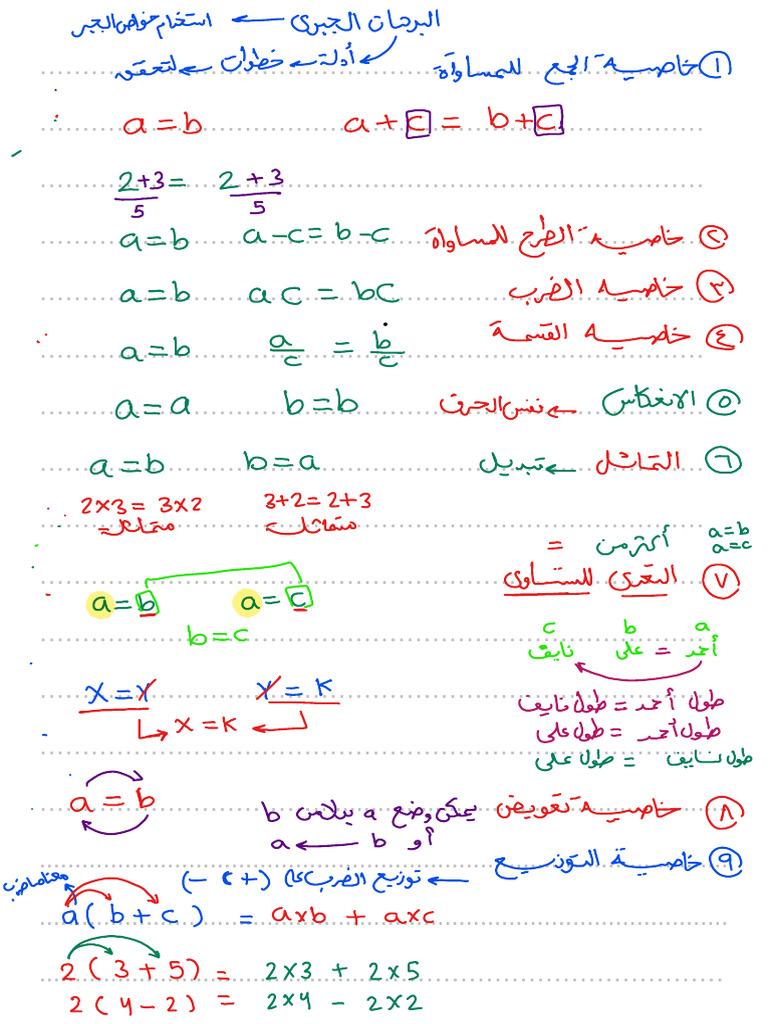 البرهان الجبرى ← استخدام خواص الجبر
أدلة ← خطوات ← لتحقق
① خاصية الجمع للمساواة
a = b a + c = b + c
2+3 = 2+3
5 5
② خاصية الطرح للمساواة a = b a - c = b - c
③ خاصية الضرب a = b ac = bc
④ خاصية القسمة a = b a/c = b/c
⑤ الانعكاس ← نفس الحرف a = a b = b
⑥ التماثل ← تبديل a = b b = a
2×3 = 3×2 3+2 = 2+3
متماثلة متماثلة
أكثر من = a=b
a=c
⑦ التعدى للتساوى
a = b a = c
b = c
a b c
أحمد = على نايف
X = Y Y = K
طول أحمد = طول نايف
X = K
طول أحمد = طول على
طول نايف = طول على
a = b
⑧ خاصية تعويض يمكن وضع a بدلاً من b
أو b ← a
⑨ خاصية التوزيع
← توزيع الضرب على (+ ، -)
معناها ضرب
a(b + c) = a×b + a×c
2(3 + 5) = 2×3 + 2×5
2(4 - 2) = 2×4 - 2×2